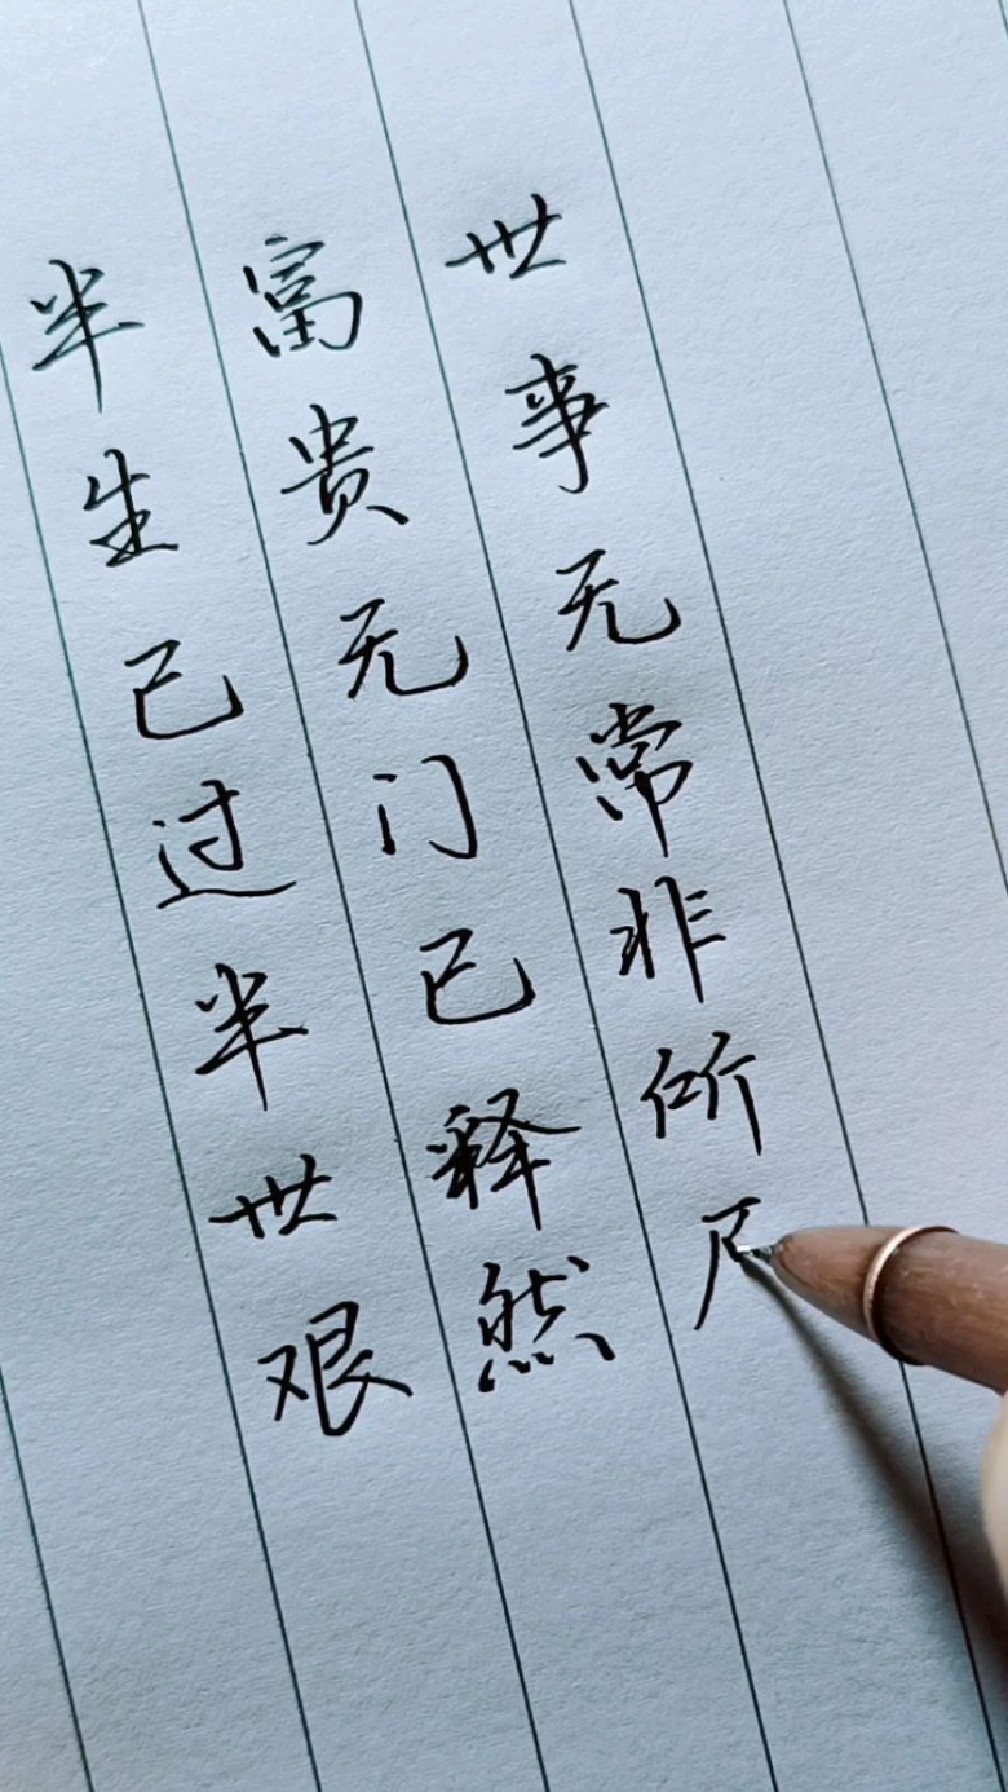 半生已过半世艰
富贵无门已释然
世事无常非所